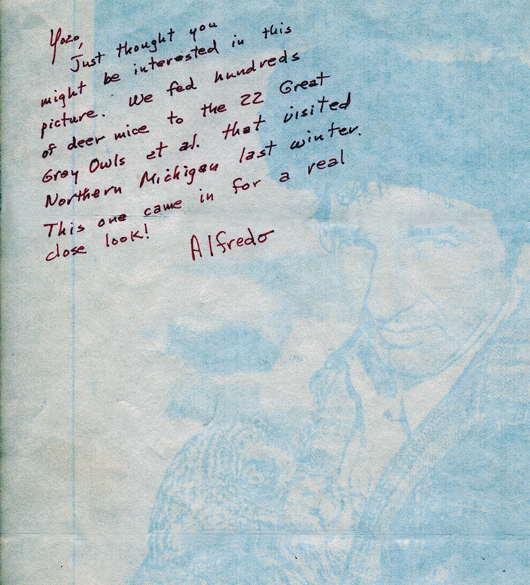 Yozo,
Just thought you
might be interested in this
picture. We fed hundreds
of deer mice to the 22 Great
Gray Owls et al. that visited
Northern Michigan last winter.
This one came in for a real
close look!
Alfredo